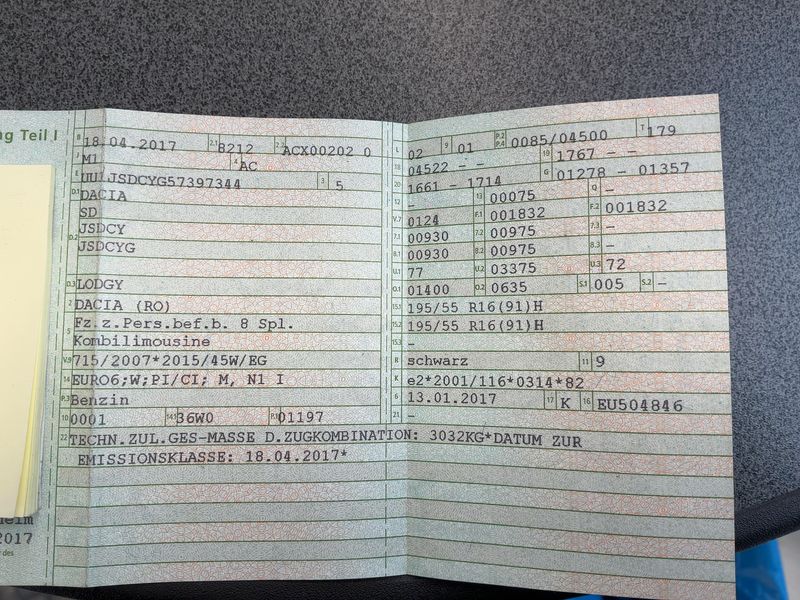 ng Teil I
B 18.04.2017 2.1 8212 2.2 ACX00202 0
J M1 4 AC
E UU1JSDCYG57397344 3 5
D.1 DACIA
SD
D.2 JSDCY
JSDCYG
D.3 LODGY
2 DACIA (RO)
5 Fz.z.Pers.bef.b. 8 Spl.
Kombilimousine
V.9 715/2007*2015/45W/EG
14 EURO6;W;PI/CI; M, N1 I
P.3 Benzin
10 0001 14.1 36W0 P.1 01197
L 02 9 01 P.2 P.4 0085/04500 T 179
18 04522 - - 19 1767 - -
20 1661 - 1714 G 01278 - 01357
12 - 13 00075 Q -
V.7 0124 F.1 001832 F.2 001832
7.1 00930 7.2 00975 7.3 -
8.1 00930 8.2 00975 8.3 -
U.1 77 U.2 03375 U.3 72
O.1 01400 O.2 0635 S.1 005 S.2 -
15.1 195/55 R16(91)H
15.2 195/55 R16(91)H
15.3 -
R schwarz 11 9
K e2*2001/116*0314*82
6 13.01.2017 17 K 16 EU504846
21 -
22 TECHN.ZUL.GES-MASSE D.ZUGKOMBINATION: 3032KG*DATUM ZUR
EMISSIONSKLASSE: 18.04.2017*
heim
2017
des